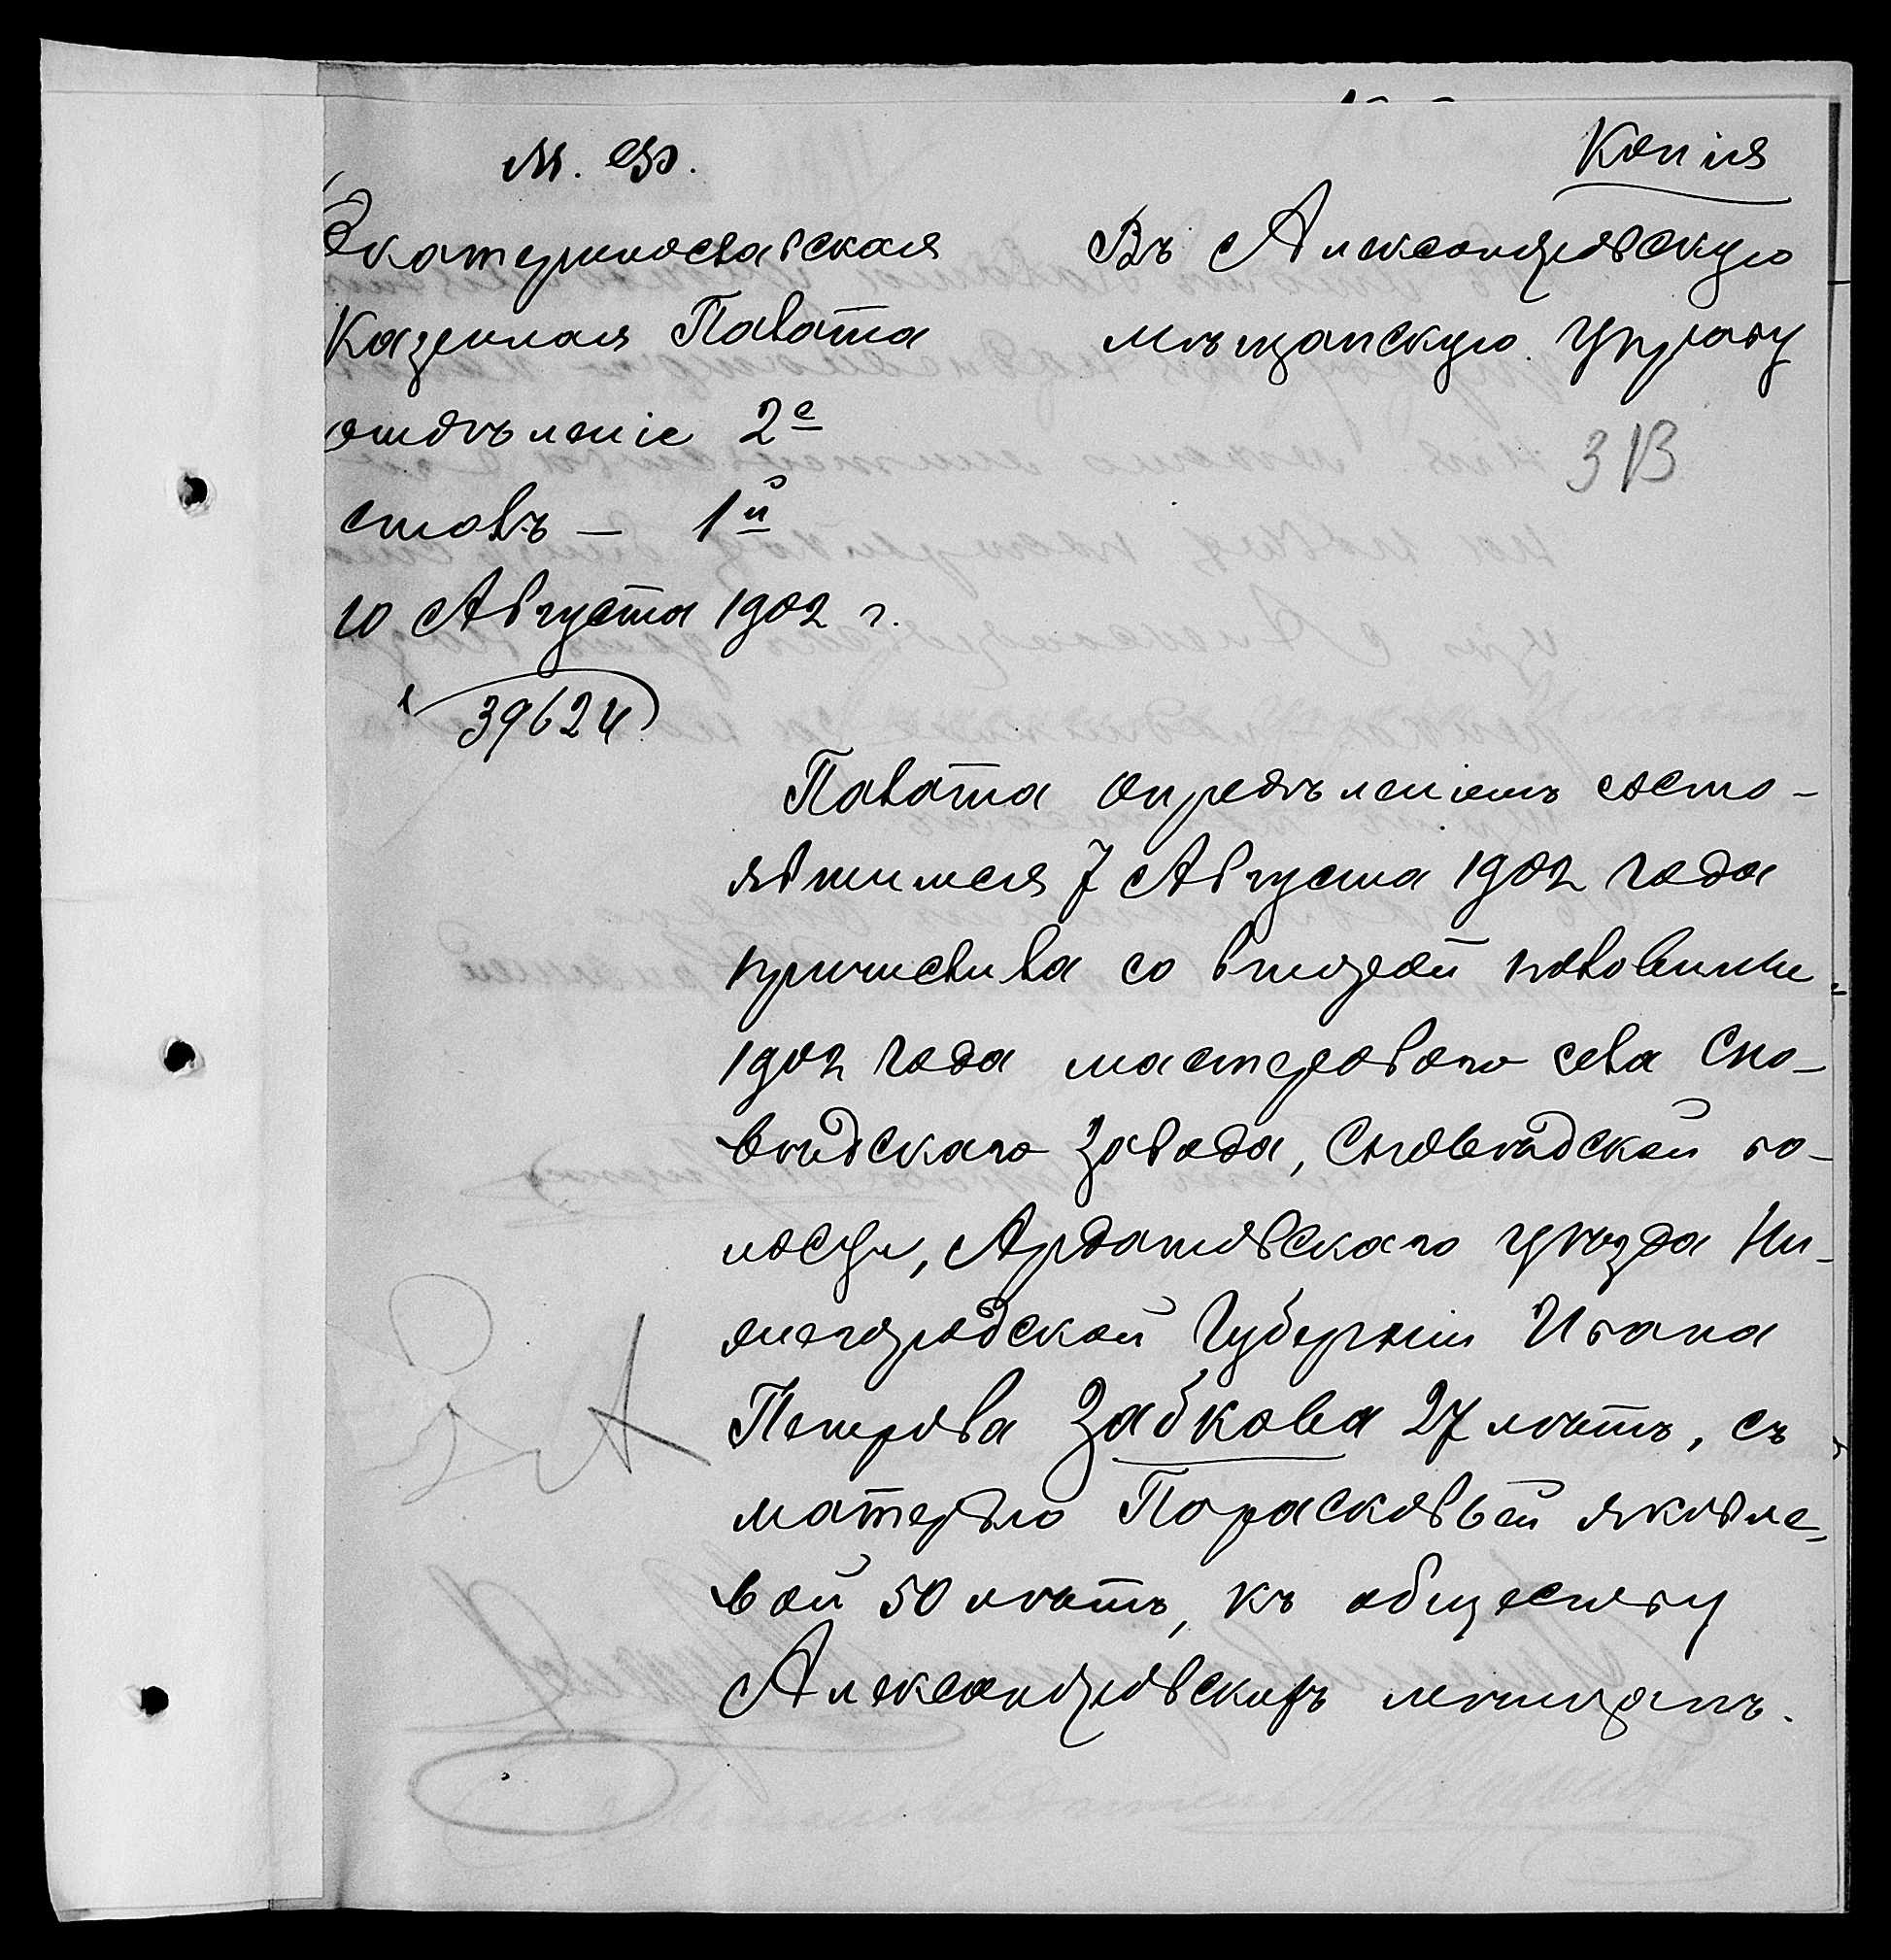 М. Ф.
Копія
Екатеринославская
Казенная Палата
отдѣленіе 2е
столъ – 1й
10 Августа 1902 г.
39624
Въ Александровскую
мѣщанскую Управу
313
Палата опредѣленіемъ состо-
явшимся 7 Августа 1902 года
причислила со второй половины
1902 года мастерового села Сно-
ведскаго завода, Сноведской во-
лости, Ардатовскаго уѣзда Ни-
жегородской Губерніи Ивана
Петрова Забкова 27 лѣтъ, съ
матерью Парасковьей Яковле-
вой 50 лѣтъ, къ обществу
Александровскихъ мѣщанъ.